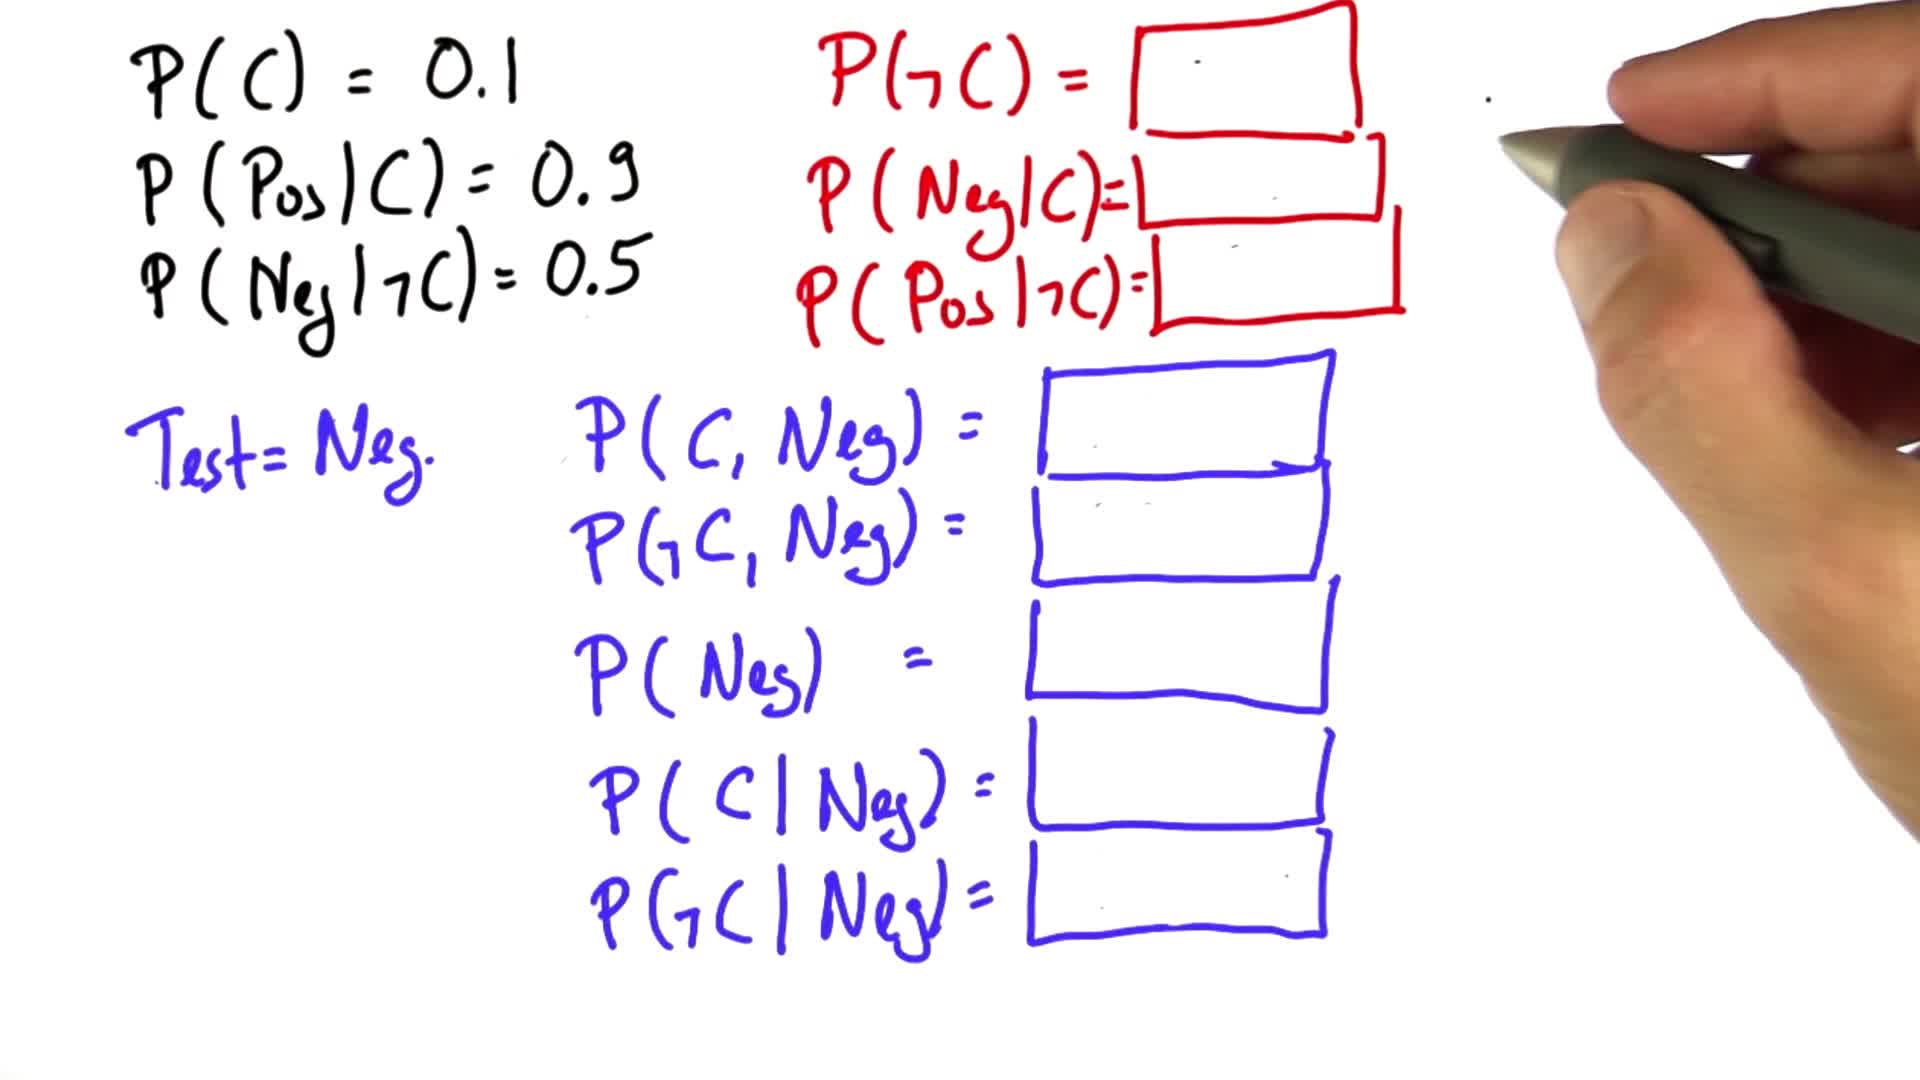 P(C) = 0.1
P(Pos|C) = 0.9
P(Neg|¬C) = 0.5
P(¬C) =
P(Neg|C) =
P(Pos|¬C) =
Test = Neg.
P(C, Neg) =
P(¬C, Neg) =
P(Neg) =
P(C|Neg) =
P(¬C|Neg) =